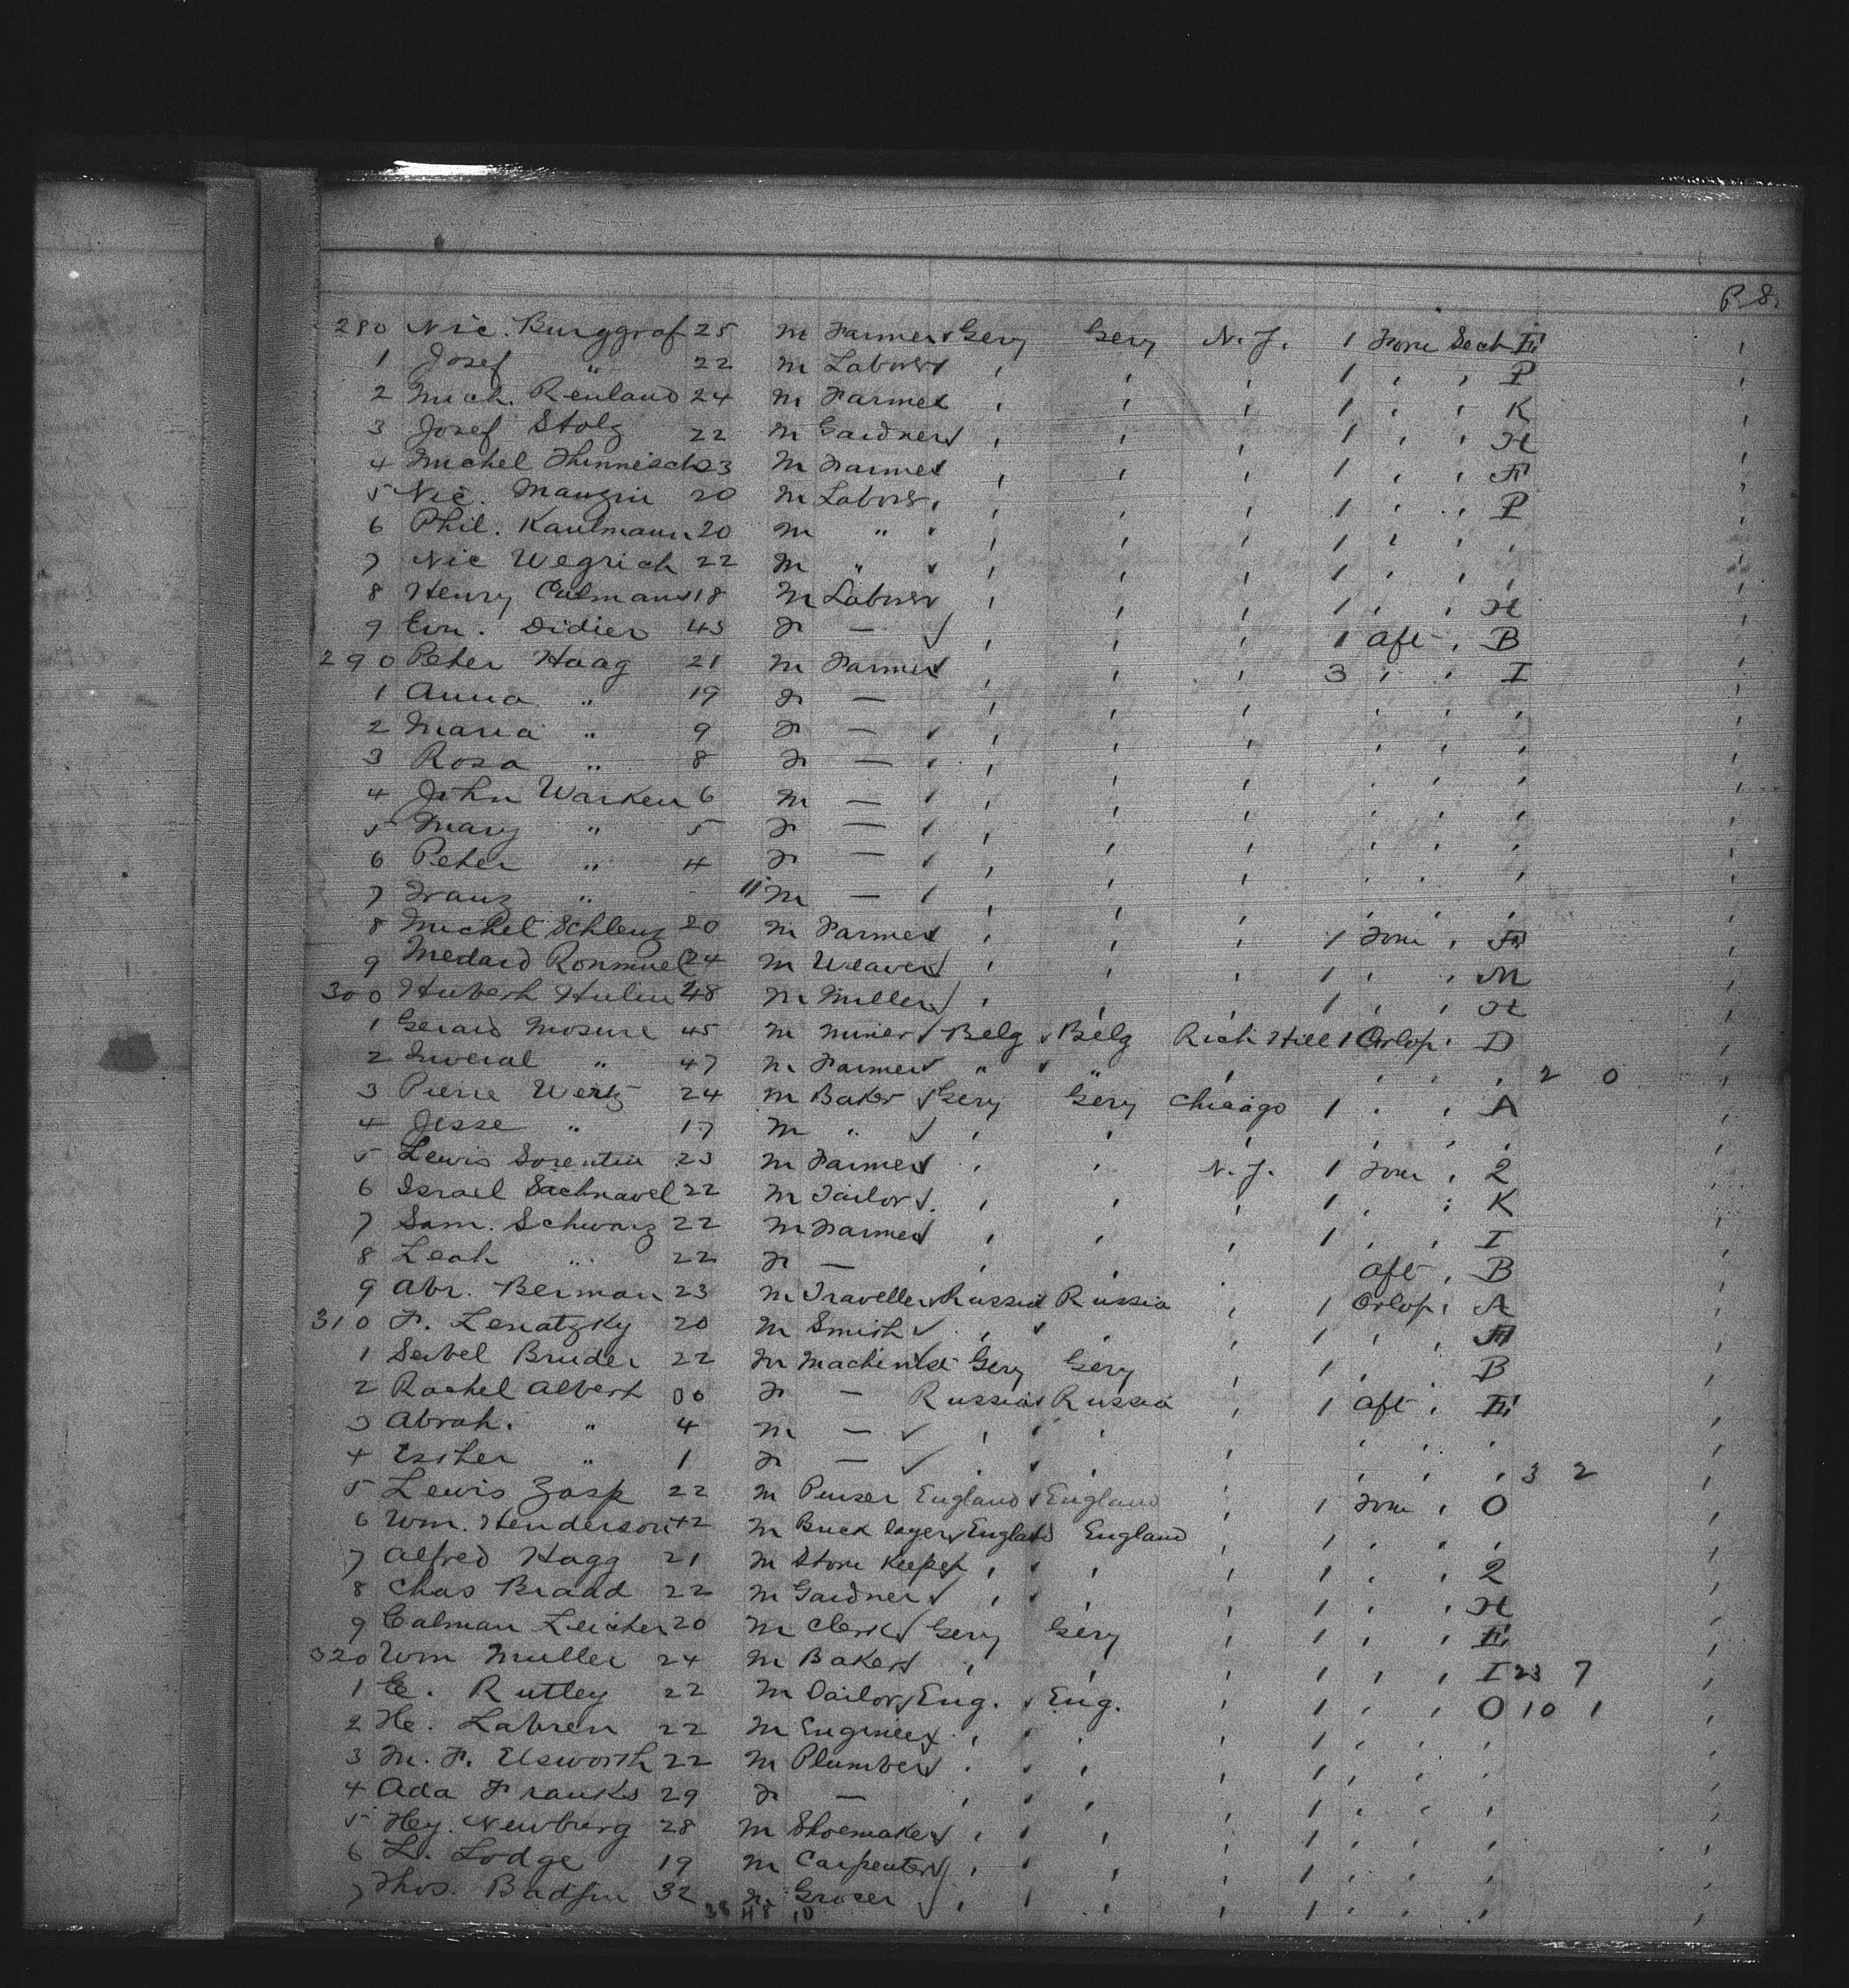 P. S.
280 Nic. Burggraf 25 M Farmer Gery Gery N.J. 1 Fore Sect F
1 Josef " 22 M Laborer , , , 1 , , P
2 Mich. Renland 24 M Farmer , , , 1 , , K
3 Josef Stolz 22 M Gardner , , , 1 , , H
4 Michel Thinnisch 23 M Farmer , , , 1 , , F
5 Nic. Maugin 20 M Laborer , , , 1 , , P
6 Phil. Kaulmann 20 M " , , , 1 , , ,
7 Nic Wegrich 22 M " , , , 1 , , ,
8 Henry Calmans 18 M Laborer , , , 1 , , H
9 Didier 43 F — , , , 1 Aft , B
290 Peter Haag 21 M Farmer , , , 3 , , I
1 Anna " 19 F — , , , , , ,
2 Maria " 9 F — , , , , , ,
3 Rosa " 8 F — , , , , , ,
4 John Warken 6 M — , , , , , ,
5 Mary " 5 F — , , , , , ,
6 Peter " 4 F — , , , , , ,
7 Franz " 11 M — , , , , , ,
8 Michel Schleng 20 M Farmer , , , 1 Fore , F
9 Medard 24 M Weaver , , , 1 , , M
300 Hubert Hulin 48 M Miller , , , 1 , , H
1 Gerard Mosure 45 M Miner Belg Belg Rich Hill 1 Orlop , D
2 " 47 M Farmer " " , , , , 2 0
3 Pierre Wertz 24 M Baker Gery Gery Chicago 1 , , A
4 Jesse " 17 M " , , , , , ,
5 Lewis Sorentin 23 M Farmer , , N.J. 1 Fore , 2
6 Israel Sachnavel 22 M Tailor , , , 1 , , K
7 Sam. Schwarz 22 M Farmer , , , 1 , , I
8 Leah " 22 F — , , , Aft , B
9 Abr. Berman 23 M Traveller Russia Russia , 1 Orlop , A
310 F. Lenatzky 20 M Smith , , , 1 , , F
1 Seibel Bruder 22 M Machinist Gery Gery , 1 , , B
2 Rachel Albert 30 F — Russia Russia , 1 Aft , F
3 Abrah. " 4 M — , , , , , ,
4 Esther " 1 F — , , , , , , 3 2
5 Lewis Zasp 22 M Purser England England , 1 Fore , O
6 Wm. Henderson 42 M Brick layer England England , 1 , , ,
7 Alfred Hagg 21 M Store Keeper , , , 1 , , 2
8 Chas Braad 22 M Gardner , , , 1 , , H
9 Calman Leicher 20 M Clerk Gery Gery , 1 , , F
320 Wm Muller 24 M Baker , , , 1 , , I 23 7
1 E. Rutley 22 M Tailor Eng. Eng. , 1 , , O 10 1
2 He. Labren 22 M Engineer , , , 1 , , ,
3 M. F. Elsworth 22 M Plumber , , , 1 , , ,
4 Ada Franks 29 F — , , , 1 , , ,
5 Hey. Newburg 28 M Shoemaker , , , 1 , , ,
6 L. Lodge 19 M Carpenter , , , 1 , , ,
7 Thos. 32 Grocer , , , 1 , , ,
38 48 10